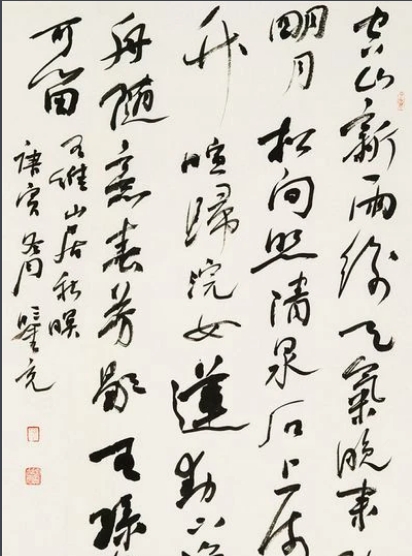 空山新雨後天氣晚來
明月松間照清泉石上流
竹喧歸浣女蓮動下漁
舟隨意春芳歇王孫
可留
王維山居秋暝
庚寅